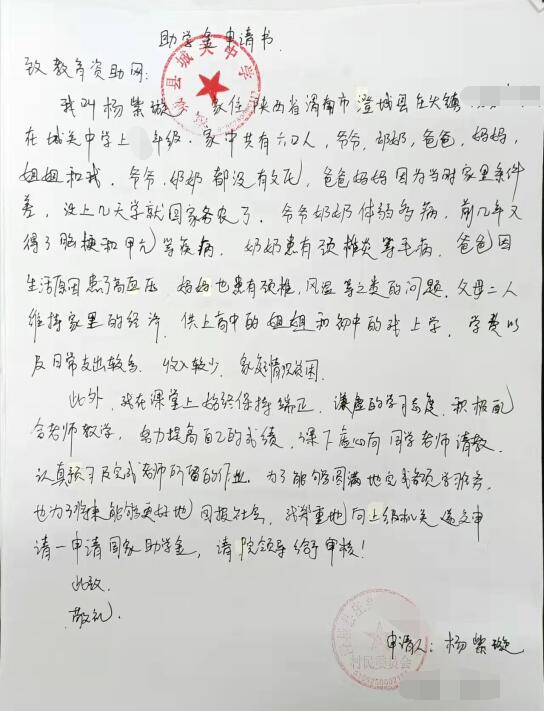 助学金申请书
致教育资助网:
我叫杨紫璇 家住陕西省渭南市澄城县庄头镇
在城关中学上 年级. 家中共有六口人, 爷爷, 奶奶, 爸爸, 妈妈,
姐姐和我. 爷爷, 奶奶都没有文化, 爸爸妈妈因为当时家里条件
差, 没上几天学就回家务农了. 爷爷奶奶体弱多病, 前几年又
得了脑梗和甲亢等疾病. 奶奶患有颈椎炎等毛病. 爸爸因
生活原因患了高血压. 妈妈也患有颈椎, 风湿等之类的问题. 父母二人
维持家里的经济. 供上高中的姐姐和初中的我上学, 学费以
及日常支出较多. 收入较少. 家庭情况贫困.
此外, 我在课堂上始终保持端正、谦虚的学习态度, 积极配
合老师教学, 努力提高自己的成绩, 课下虚心向同学老师请教,
认真预习及完成老师所留的作业. 为了能够圆满地完成各项学业,
也为了将来能够更好地回报社会, 我郑重地向上级机关递交申
请一申请国家助学金, 请院领导给予审核!
此致.
敬礼.
申请人: 杨紫璇
县城关中学
村民委员会